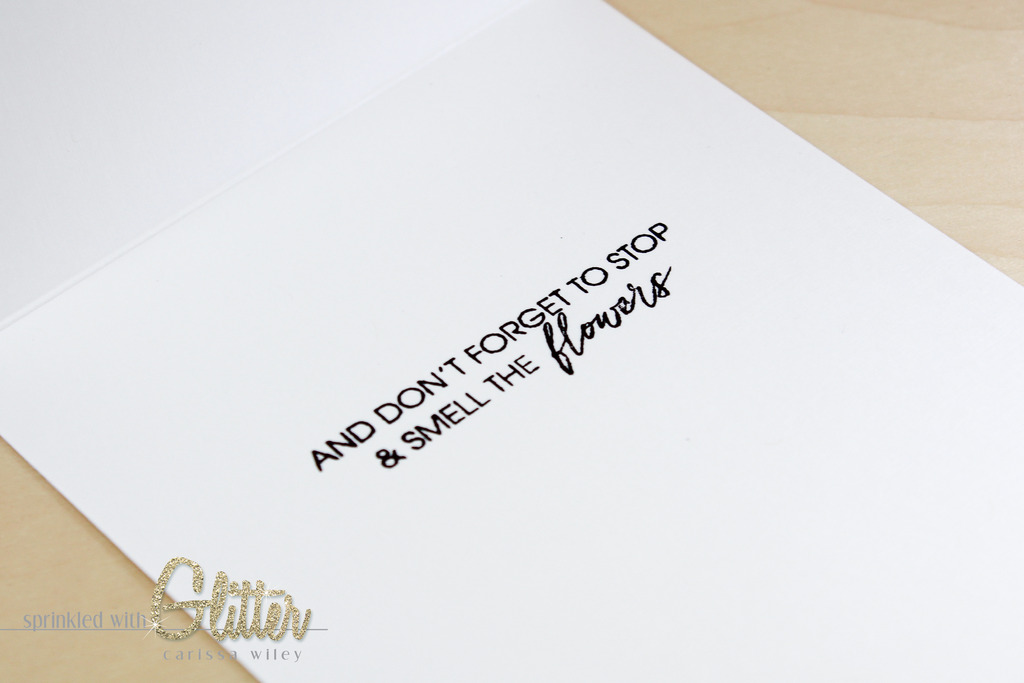 AND DON'T FORGET TO STOP
& SMELL THE flowers
sprinkled with Glitter
carissa wiley